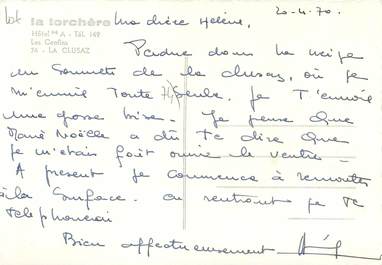 lot
la torchère
Hôtel ** A - Tél. 149
Les Confins
74 - LA CLUSAZ
20-4-70.
Ma chère Hélène,
Perdue dans la neige
au Sommets de la clusaz, où je
m'ennuie Toute Seule. Je T'envoie
une grosse bise. Je pense que
Marie Noëlle a dû Te dire que
je m'étais fait ouvrir le ventre -
A present je commence à remonter
à la Surface. en rentrant je te
telephonerai
Bien affectueusement